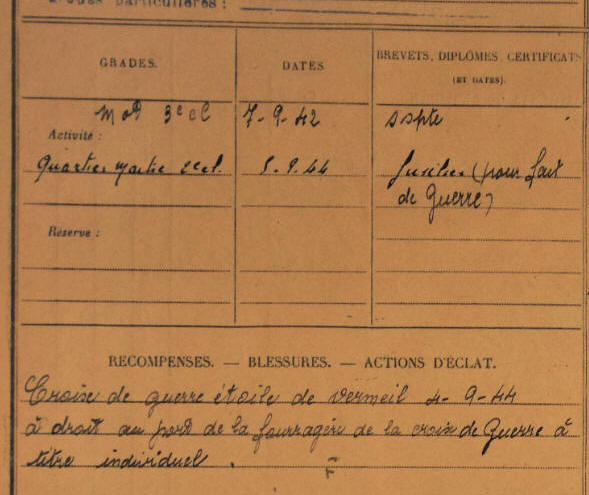 études particulières :
GRADES. DATES BREVETS, DIPLÔMES, CERTIFICATS
(ET DATES).
Mot 3e cl 7-9-42 sspte
Activité :
Quartier maitre 2e cl. 5.9.44 fusilier (pour fait
de Guerre)
Réserve :
RECOMPENSES. — BLESSURES. — ACTIONS D'ÉCLAT.
Croix de guerre étoile de vermeil 4-9-44
à droit au port de la fourragère de la croix de Guerre à
titre individuel .